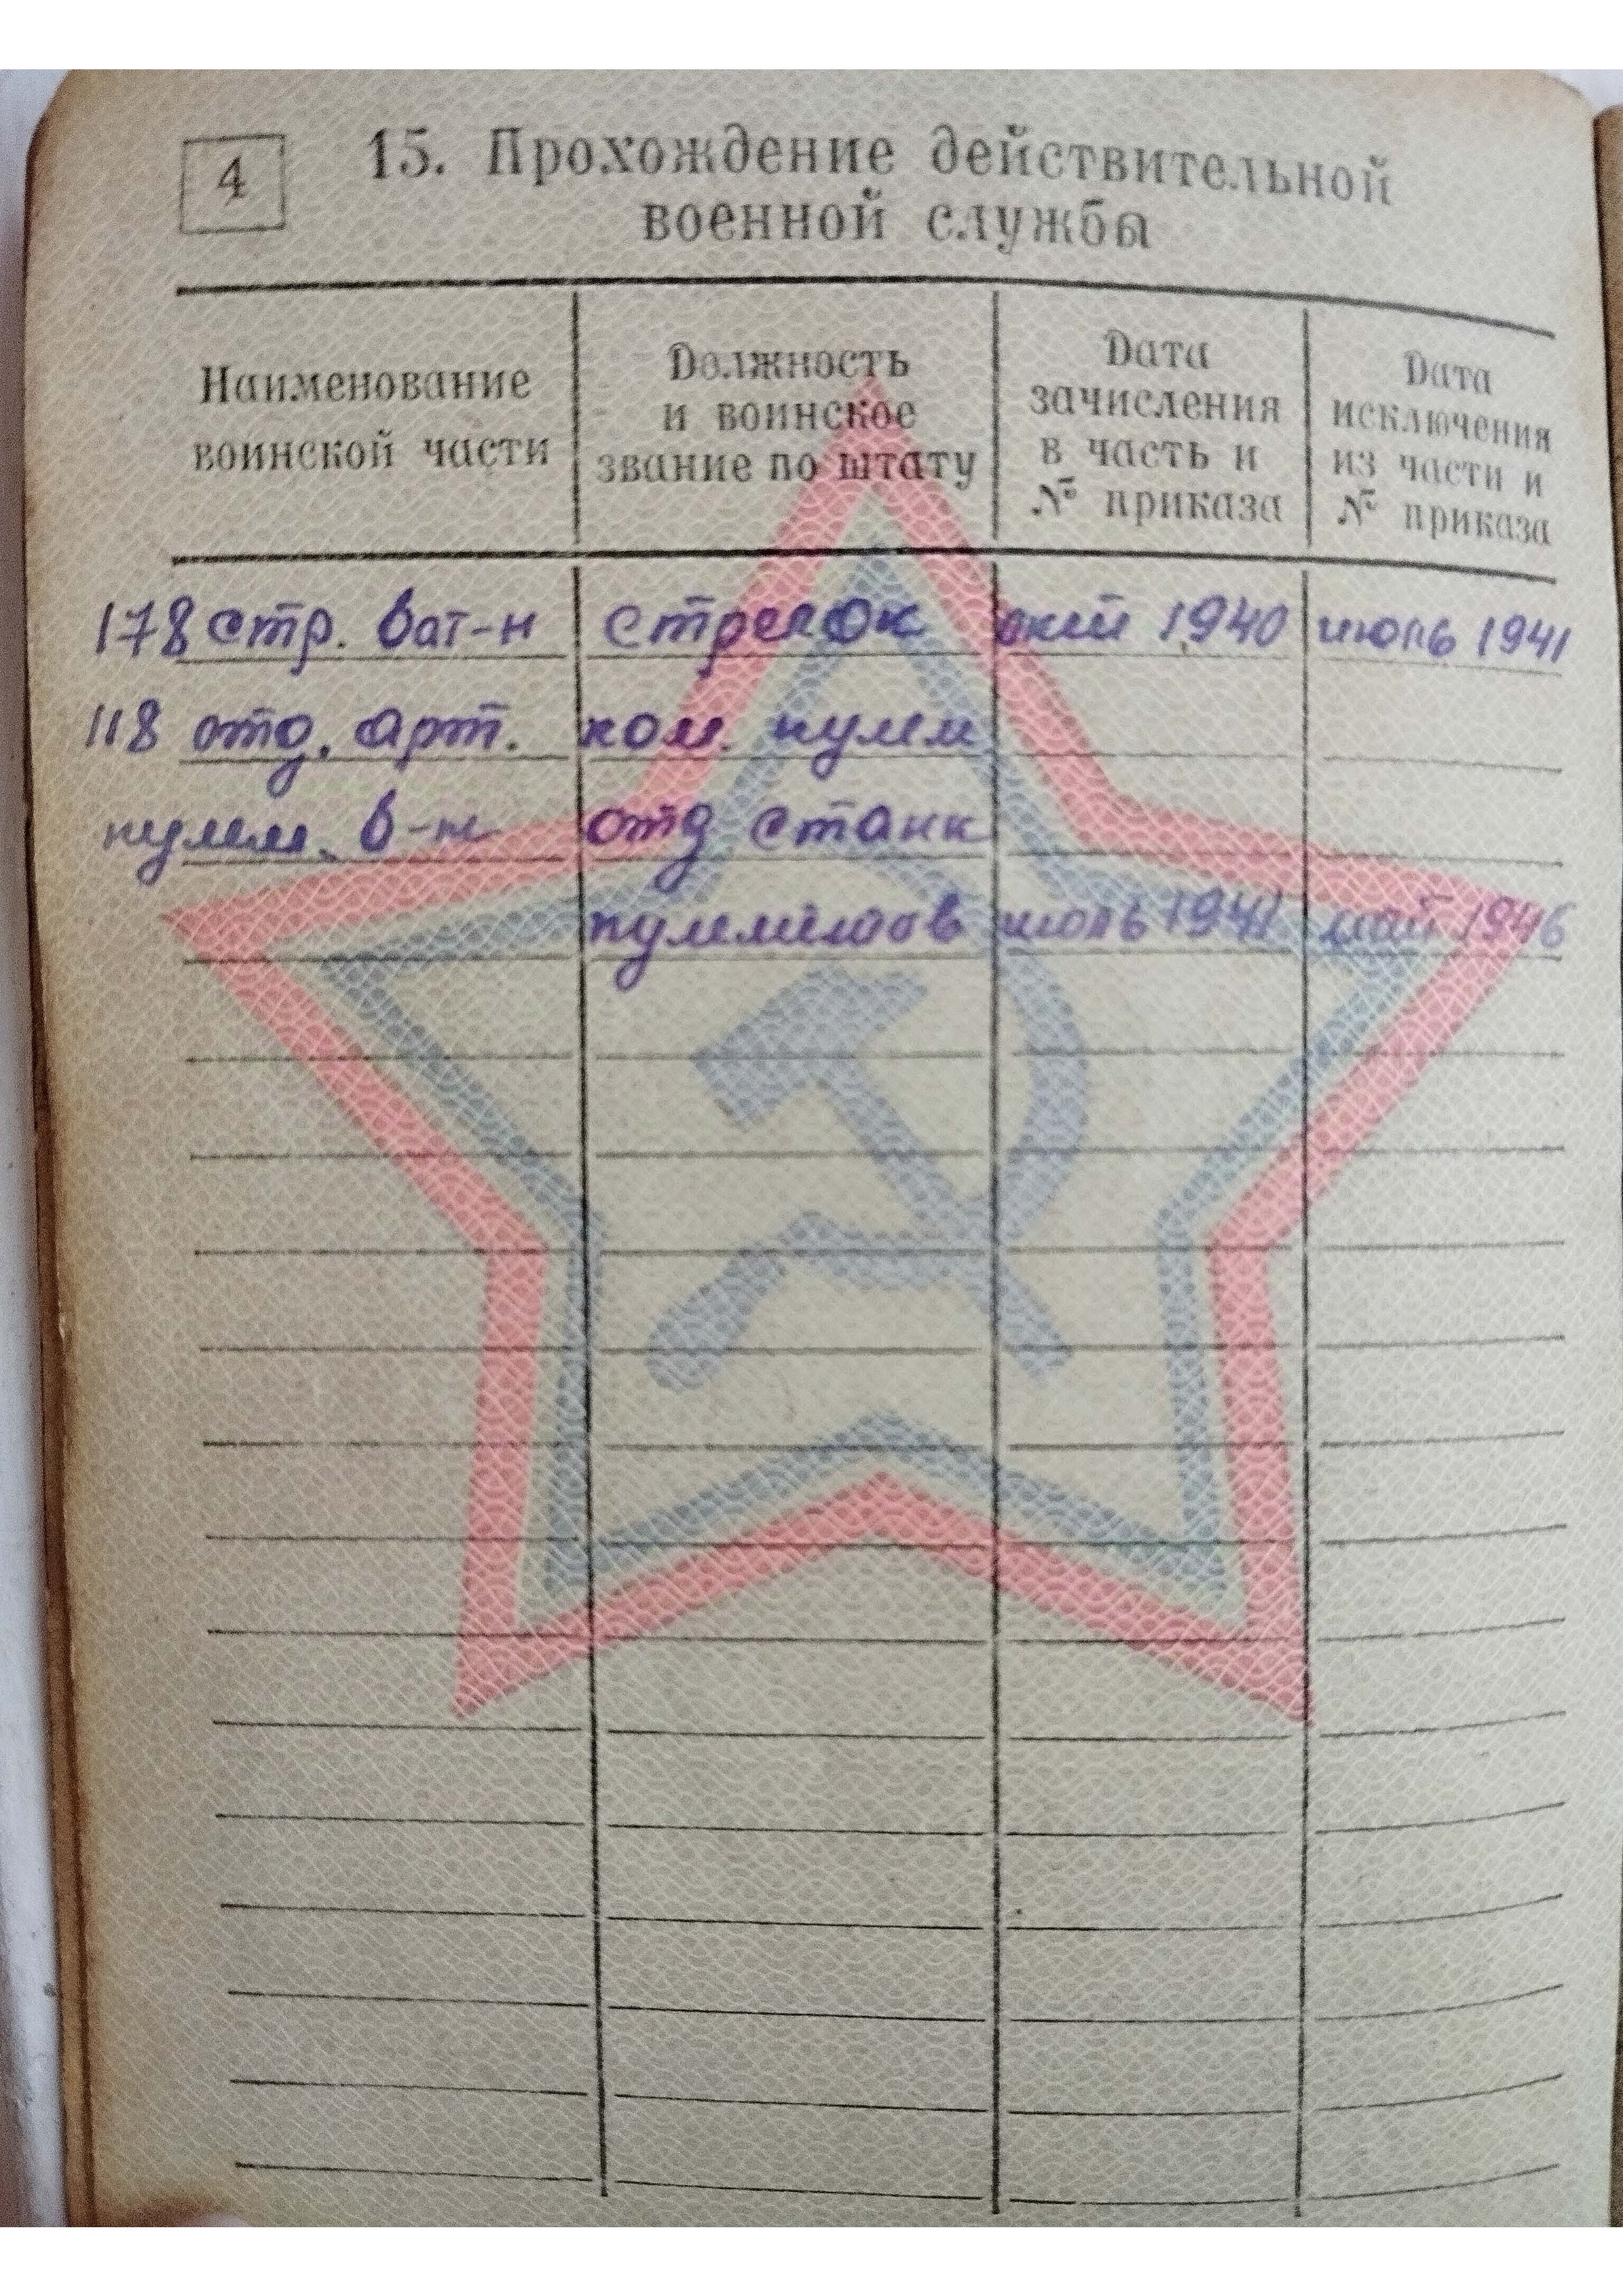 4
15. Прохождение действительной
военной службы
Наименование
воинской части
Должность
и воинское
звание по штату
Дата
зачисления
в часть и
№ приказа
Дата
исключения
из части и
№ приказа
178 стр. бат-н стрелок окт 1940 июль 1941
118 отд. арт. ком. пулем
пулем. б-н отд станк
пулемётов июль 1941 май 1946